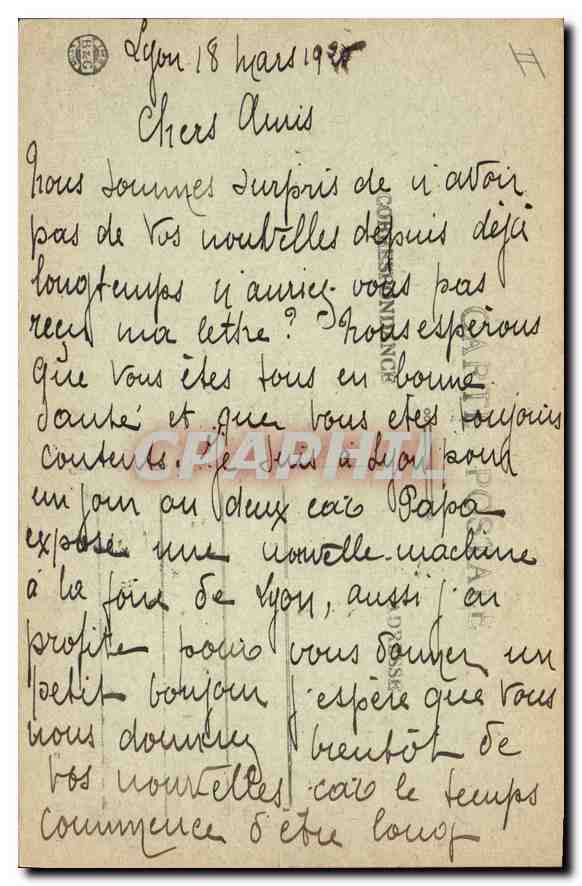 B&C
II
Lyon 18 mars 19
Chers Amis
Nous sommes surpris de n'avoir
pas de vos nouvelles depuis déjà
longtemps n'auriez-vous pas
reçu ma lettre? Nous espérons
que vous êtes tous en bonne
santé et que vous etes toujours
contents. Je suis à Lyon pour
un jour ou deux car Papa
expose une nouvelle machine
à la foire de Lyon, aussi j'en
profite pour vous donner un
petit bonjour j'espère que vous
nous donnerez bientôt de
vos nouvelles car le temps
commence d'être long
CARTE POSTALE
CORRESPONDANCE
ADRESSE
CPAPHIL